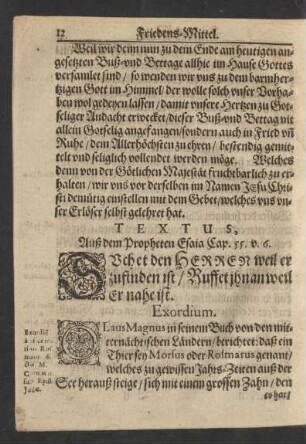 12 Friedens-Mittel.
Weil wir denn nun zu dem Ende am heutigen an-
gesetzten Buß-vnd Bettage allhie im Hause Gottes
versamlet sind / so wenden wir vns zu dem barmher-
tzigen Gott im Himmel / der wolle solch vnser Vorha-
ben wol gedeyen lassen / damit vnsere Hertzen zu Got-
seliger Andacht erwecket / dieser Buß-vnd Bettag nit
allein Gotselig angefangen / sondern auch in Fried vñ
Ruhe / dem Allerhöchsten zu ehren / bestendig gemit-
telt vnd seliglich vollendet werden möge. Welches
denn von der Götlichen Majestät fruchtbarlich zu er-
halten / wir vns vor derselben im Namen JEsu Chri-
sti demütig einstellen mit dem Gebet / welches vns vn-
ser Erlöser selbst gelehret hat.
TEXTUS,
Auß dem Propheten Esaia Cap. 55. v. 6.
SVchet den HERREN weil er
zufinden ist / Ruffet jhn an weil
Er nahe ist.
Exordium.
OLaus Magnus in seinem Buch von den mit-
ternächtischen Ländern / berichtet: daß ein
Thier sey Morsus oder Rosmarus genant /
welches zu gewissen Jahrs-Zeiten auß der
See herauß steige / sich mit einem grossen Zahn / den
es hat /